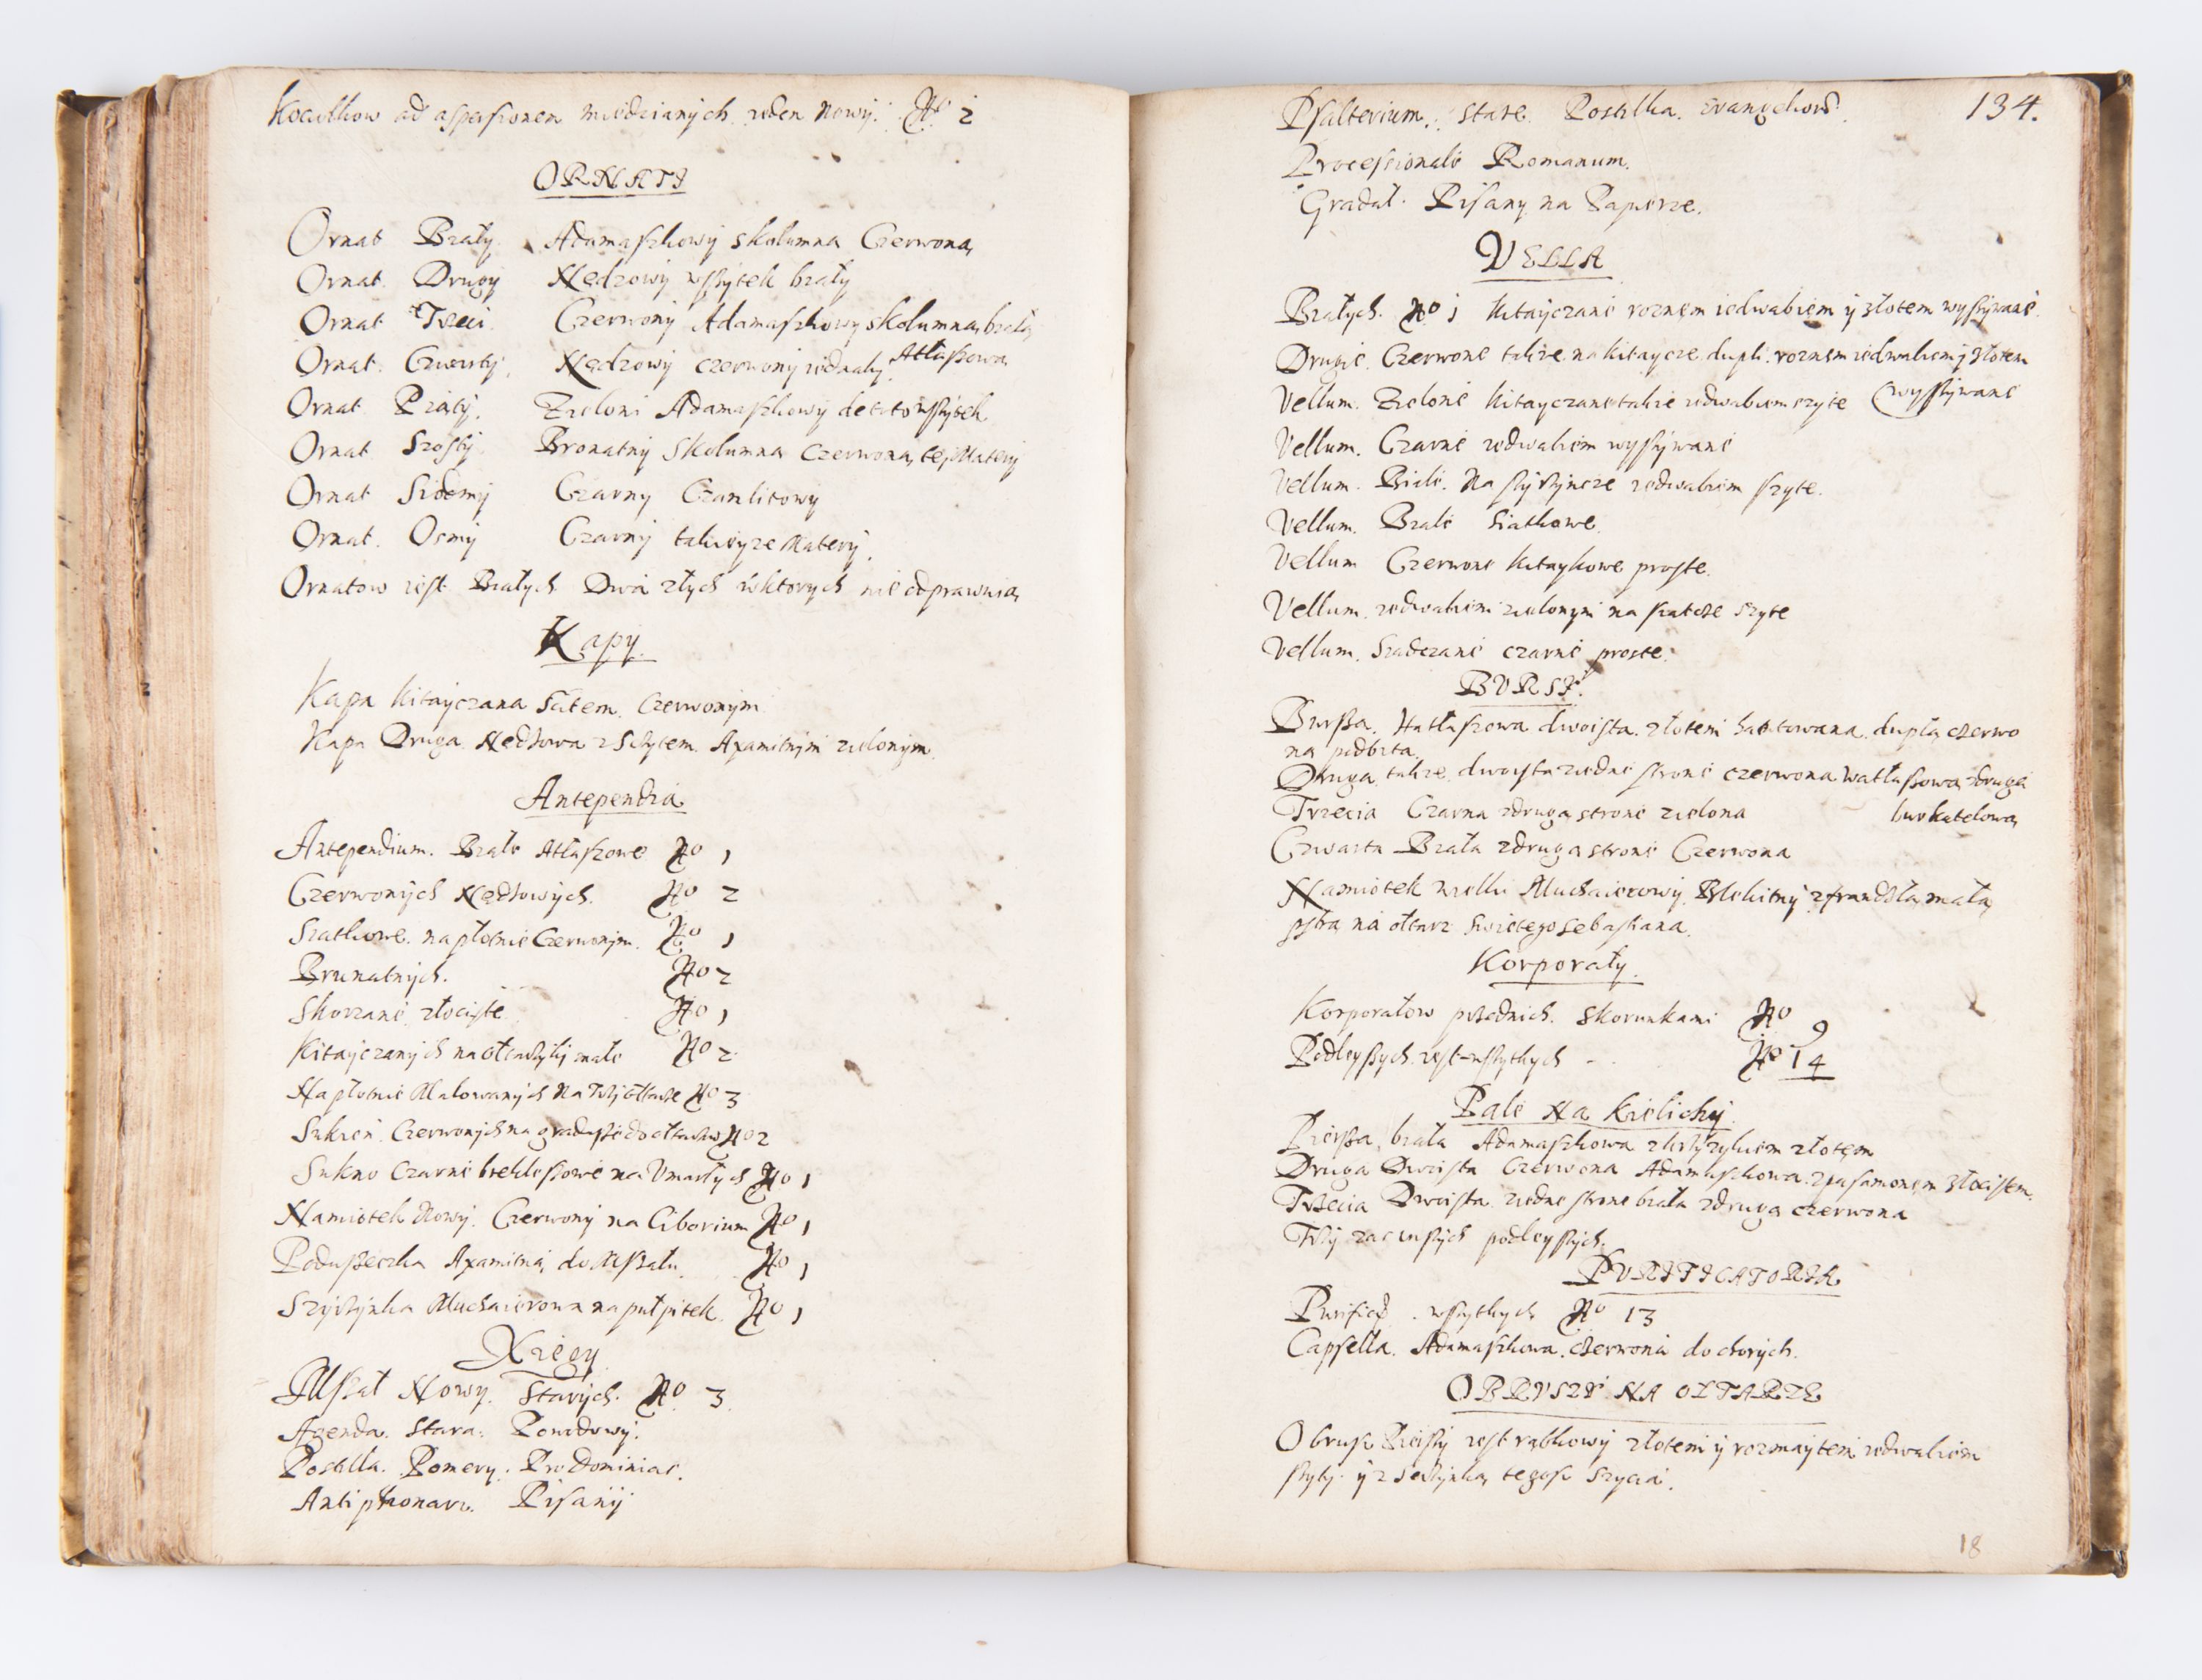 Kociołkow ad aspersionem miedzianych ieden Nowy. No 2
ORNATY
Ornat Biały Adamaszkowy skolumną Czerwoną
Ornat Drugy Nędzowy wszytek biały
Ornat Trzeci Czerwony Adamaszkowy skolumną białą
Ornat Czwarty Nędzowy czerwony Atłaszową
Ornat Piąty Zieloni Adamaszkowy wszytek
Ornat Szosty Bronatny Skolumną Czerwoną tej Matery
Ornat Siodmy Czarny Czamlitowy
Ornat Osmy Czarny takieyze Matery
Ornatow iest Białych Dwa złych wktorych nie odprawuią
Kapy
Kapa Kitayczana Czerwonym
Kapa Druga Axamitnym zielonym
Antependia
Antependium Białe Atłaszowe No 1
Czerwonych No 2
Siatkowe na płotnie Czerwonym No 1
Brunatnych No 2
Skorzane złociste No 1
Kitayczanych małe No 2
Na płotnie Malowanych Na No 3
Sukien Czerwonych na No 2
Sukno Czarne na Umarłych No 1
Namiotek Nowy Czerwony na Ciborium No 1
Poduszeczka Axamitna do Mszału No 1
Muchaierowa na pulpitek No 1
Xięgy
Mszał Nowy. Starych. No 3
Agenda Stara.
Postilla. Pomery.
Antiphonarz Pisany
134.
Psalterium. stare. Postilla.
Processionale Romanum.
Graduał Pisany na Papierze.
VELLA
Białych No 1 Kitayczane roznem iedwabiem y złotem wyszywane
Drugie Czerwone takze na kitayce dupli roznem iedwabiem y złotem
Vellum. Zielone Kitayczane takze iedwabiem szyte (wyszywane
Vellum. Czarne iedwabiem wyszywane
Vellum. Białe. Na iedwabiem szyte.
Vellum. Białe Siatkowe.
Vellum Czerwone kitaykowe proste.
Vellum. iedwabiem zielonym na siatcze szyte
Vellum. czarne proste.
BURSY
Bursza. Hatłaszowa dwoista. złotem haftowana. duplą czerwo
ną podbita
Druga takze dwoista ziedne strone czerwona Hatłaszowa zdrugą
Trzecia Czarna zdrugą strone zielona
Czwarta Biała zdrugą strone Czerwona
Namiotek wielki Muchaierowy Blekitny zfrandzlą małą
na ołtarz Swiętego Sebastiana.
Korporały
Korporałow przednich. Skorunkami No 9
Podleyszych iest wszytkych No 14
Pale Na Kielichy
Pierwsza biała Adamaszkowa złotem
Druga Dwoista Czerwona Adamaszkowa zpasamonem złocistem.
Trzecia Dwoista ziedne strone biała zdrugą czerwona
Trzy podleyszych.
PURIFICATORIA
Purificat. wszytkych No 13
Capsella. Adamaszkowa. czerwona do chorych.
OBRUSZY NA OLTARZE
Obrusz Pierszy iest rąbkowy złotem y rozmaytem iedwabiem
szyty tegosz szycia.
18